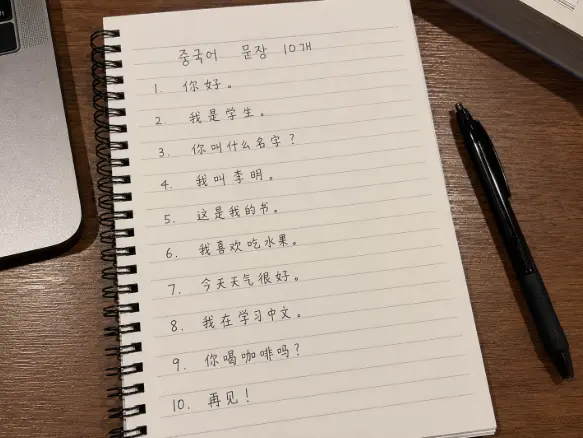 중국어 문장 10개
1. 你好。
2. 我是学生。
3. 你叫什么名字？
4. 我叫李明。
5. 这是我的书。
6. 我喜欢吃水果。
7. 今天天气很好。
8. 我在学习中文。
9. 你喝咖啡吗？
10. 再见！